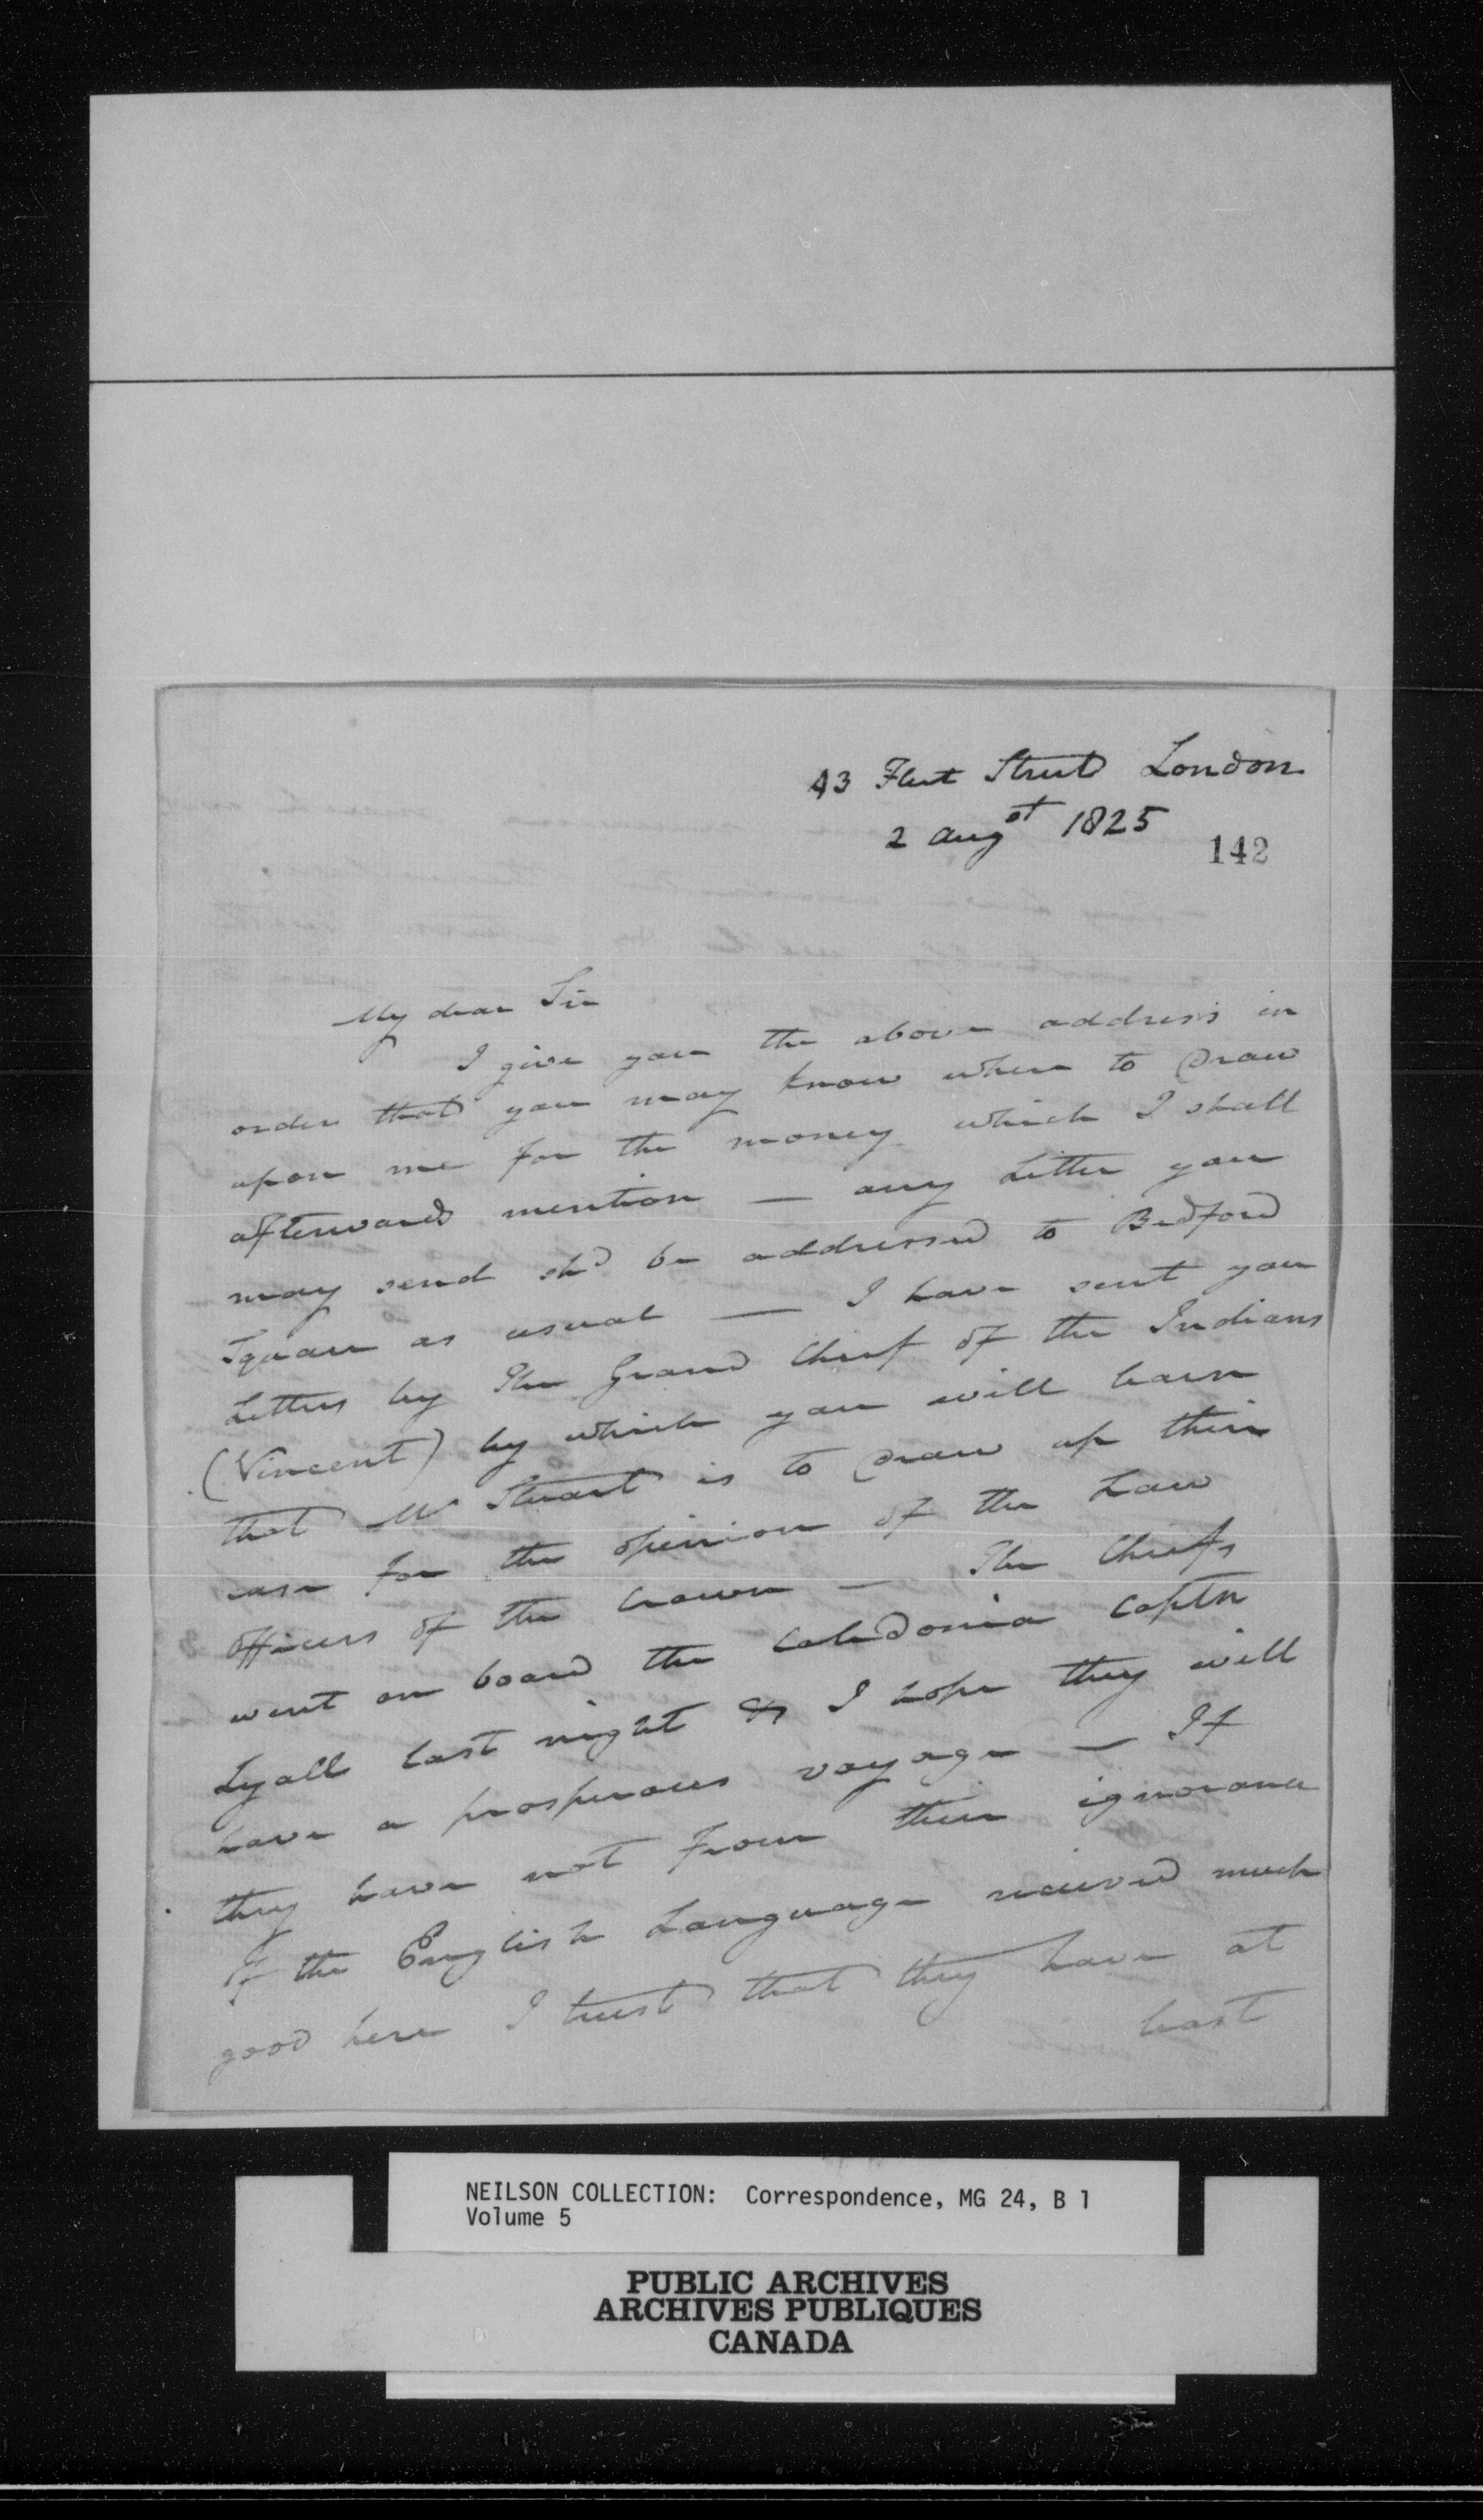 43 Fleet Street London
2 Augst 1825
142
My dear Sir
I give you the above address in
order that you may know where to draw
upon me for the money which I shall
afterwards mention — any Letter you
may send shd be addressed to Bedford
Square as usual — I have sent you
Letters by The Grand Chief of the Indians
(Vincent) by which you will learn
that Mr Stuart is to draw up their
case for the opinion of the Law
officers of the Crown — The Chiefs
went on board the Caledonia Captn
Lyall last night & I hope they will
have a prosperous voyage — If
they have not from their ignorance
of the English Language received much
good here I trust that they have at
least
NEILSON COLLECTION: Correspondence, MG 24, B 1
Volume 5
PUBLIC ARCHIVES
ARCHIVES PUBLIQUES
CANADA